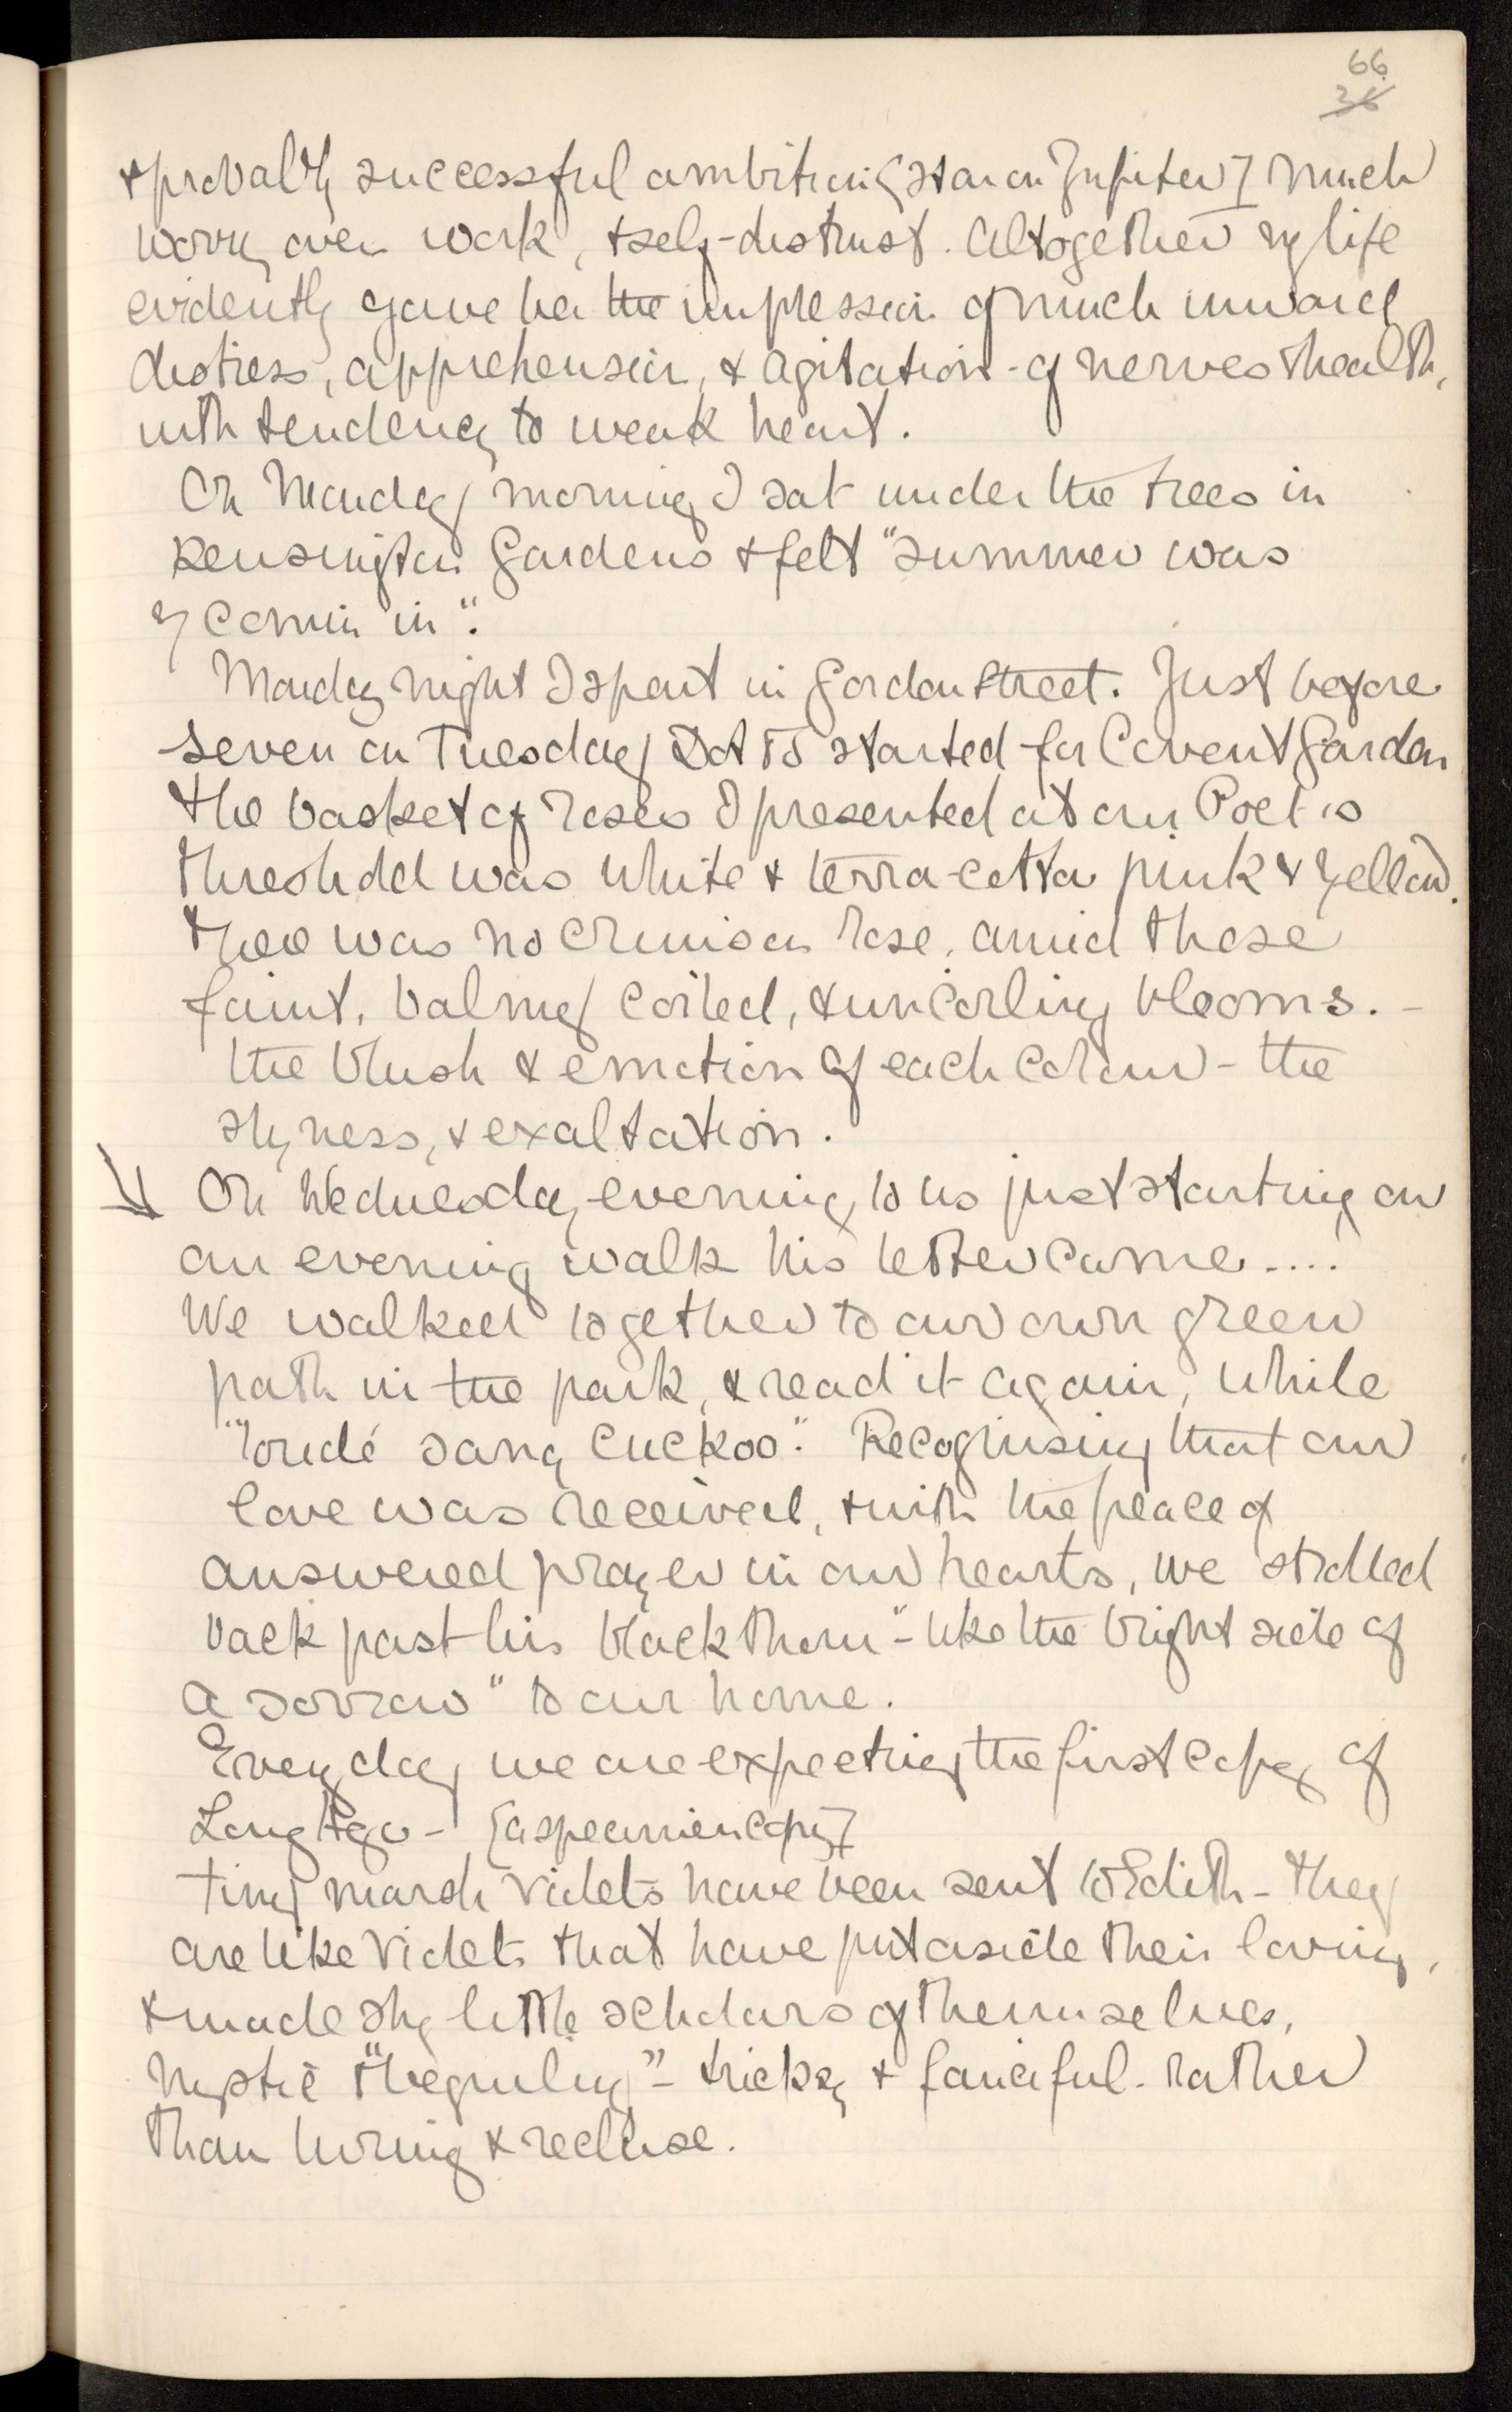 66
36
& probably successful ambition [star on Jupiter] much
worry over work, & self-distrust. Altogether my life
evidently gave her the impression of much inward
distress, apprehension, & agitation - of nerves & health,
with tendency to weak heart.
On Monday morning I sat under the trees in
Kensington Gardens & felt "summer was
y comin in".
Monday night I spent in Gordon Street. Just before
seven on Tuesday & I started for Covent Garden
The basket of roses I presented at our Poet's
threshold was white & terra-cotta pink & yellow.
There was no crimson rose, amid those
faint, balmy coiled, & uncoiling blooms. -
the blush & emotion of each colour - the
shyness, & exaltation.
On Wednesday evening, to us just starting on
an evening walk his letter came ....
We walked together to our own green
path in the park, & read it again, while
"loudé sang cuckoo". Recognising that our
love was received, & with the peace of
answered prayer in our hearts, we strolled
back past his blackthorn - "like the bright side of
a sorrow" to our home.
Every day we are expecting the first copy of
Long Ago - [a specimen copy]
Tiny marsh violets have been sent to Edith - they
are like violets that have put aside their loving,
& made shy little scholars of themselves,
mystic & - tricksy & fanciful - rather
than loving & recluse.